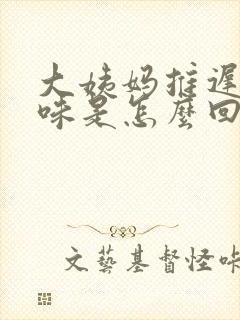 大姨妈推迟
咪是怎麼回
文藝基督怪咔